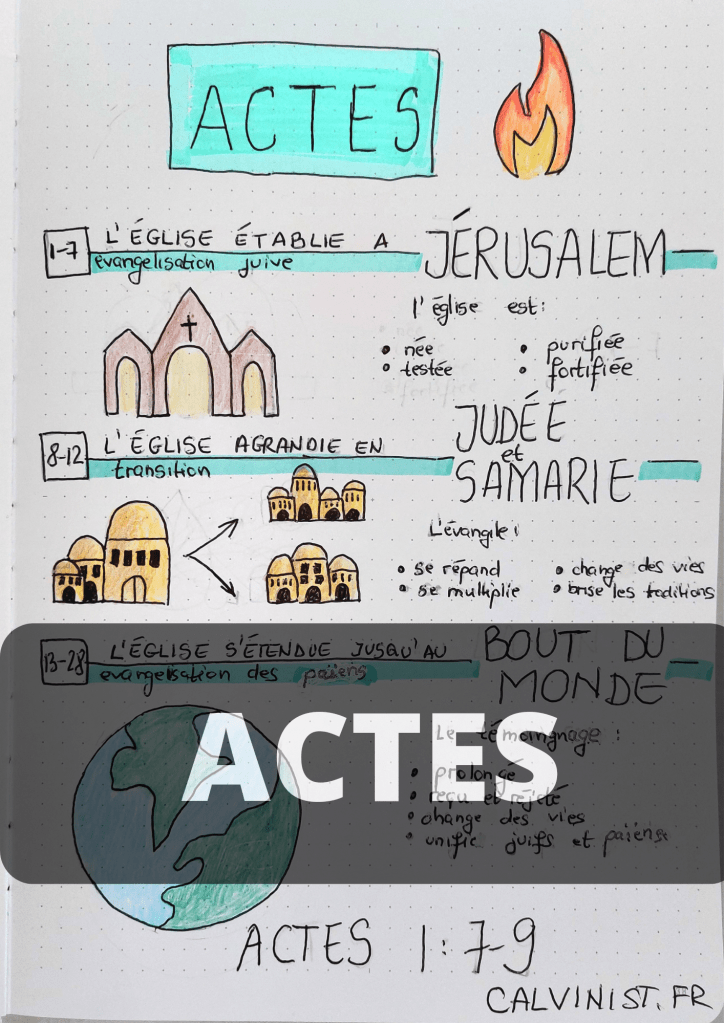 ACTES
1-7 L'ÉGLISE ÉTABLIE A JÉRUSALEM
évangelisation juive
l'église est:
• née • purifiée
• testée • fortifiée
8-12 L'ÉGLISE AGRANDIE EN JUDÉE
transition et
SAMARIE
L'évangile:
• se répand • change des vies
• se multiplie • brise les traditions
13-28 L'ÉGLISE S'ÉTENDUE JUSQU'AU BOUT DU
evangelisation des païens MONDE
ACTES
Le témoingnage :
• prolongé
• reçu et rejeté
• change des vies
• unifie juifs et païens
ACTES 1:7-9
CALVINIST.FR